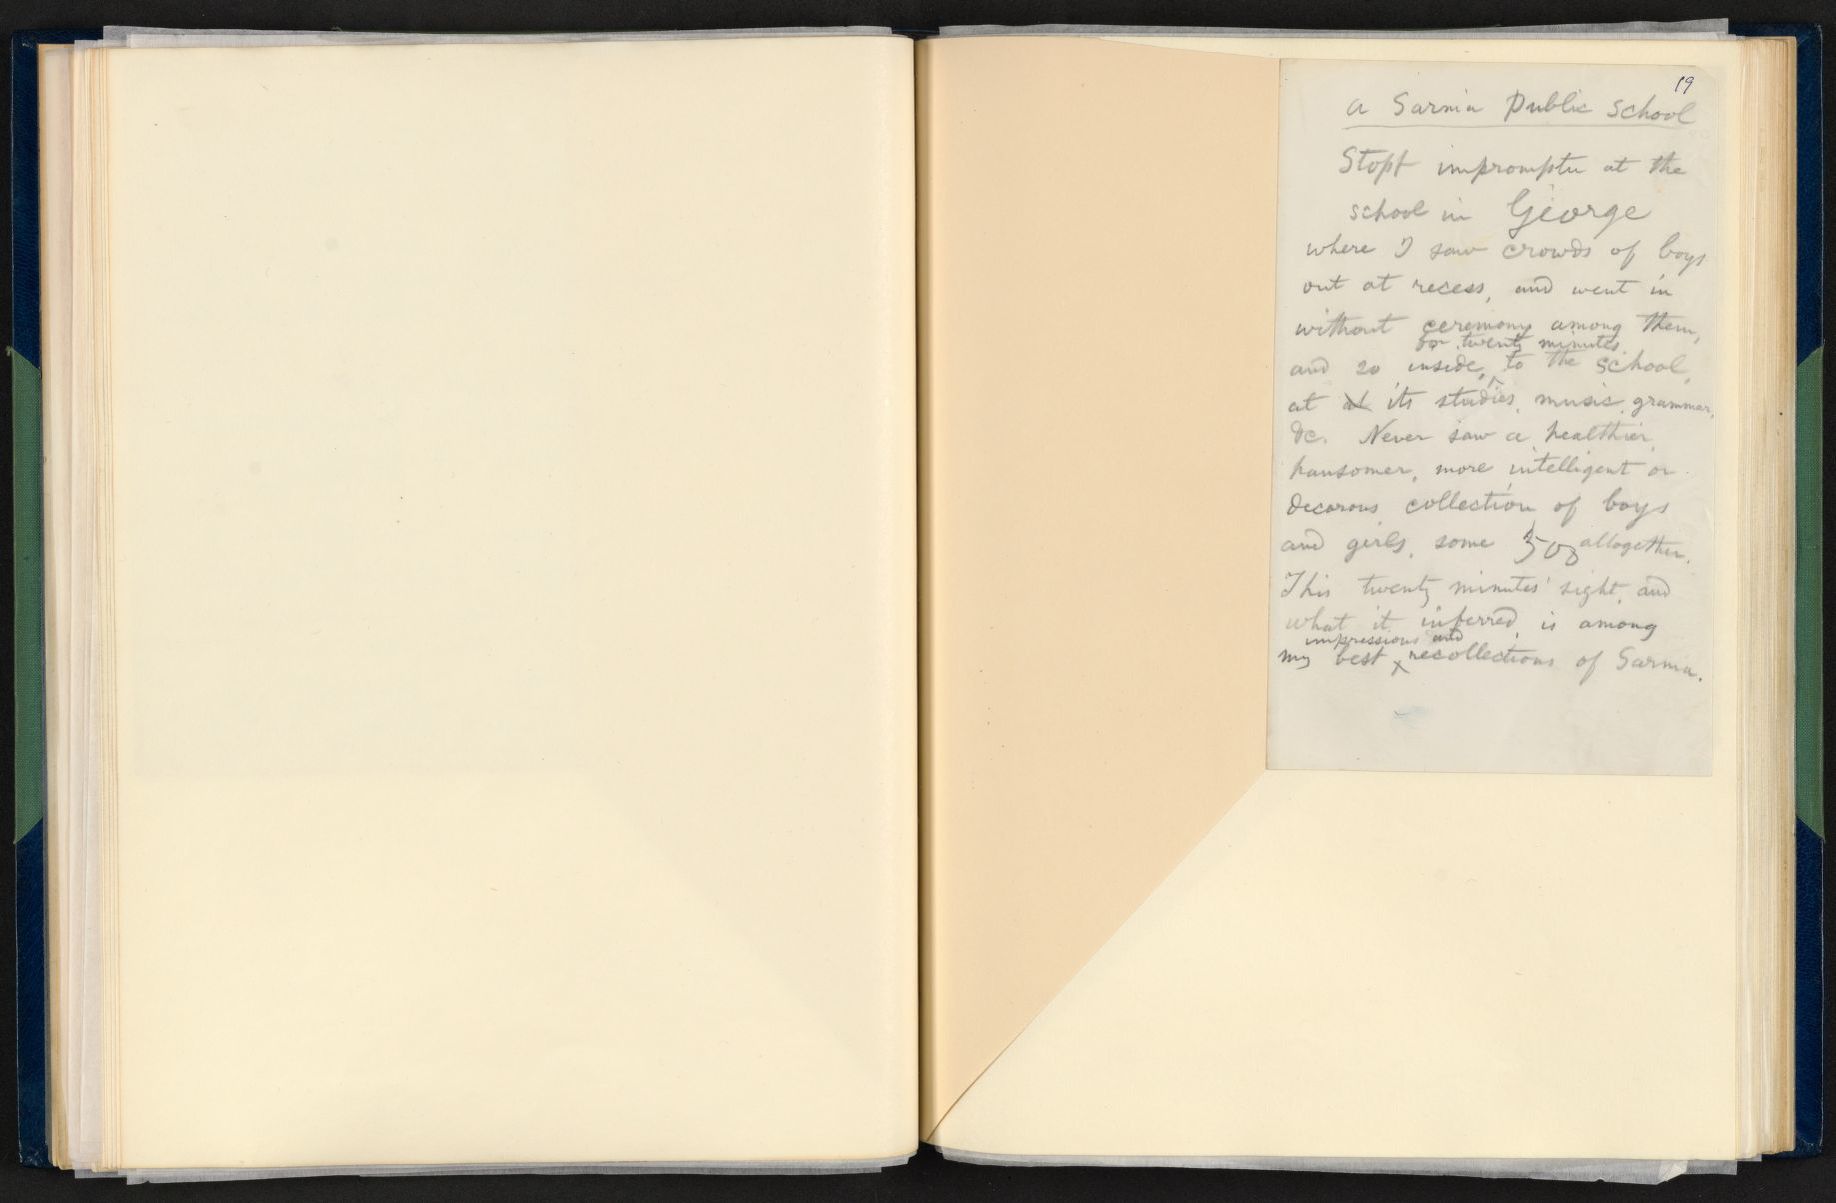 19
a Sarnia Public School
Stopt impromptu at the
school in George
where I saw crowds of boys
out at recess, and went in
without ceremony among them,
for twenty minutes
and so inside, to the school,
at at its studies, music, grammar,
&c. Never saw a healthier,
hansomer, more intelligent or
decorous collection of boys
and girls, some 500 altogether.
This twenty minutes' sight, and
what it inferred, is among
impressions and
my best recollections of Sarnia.